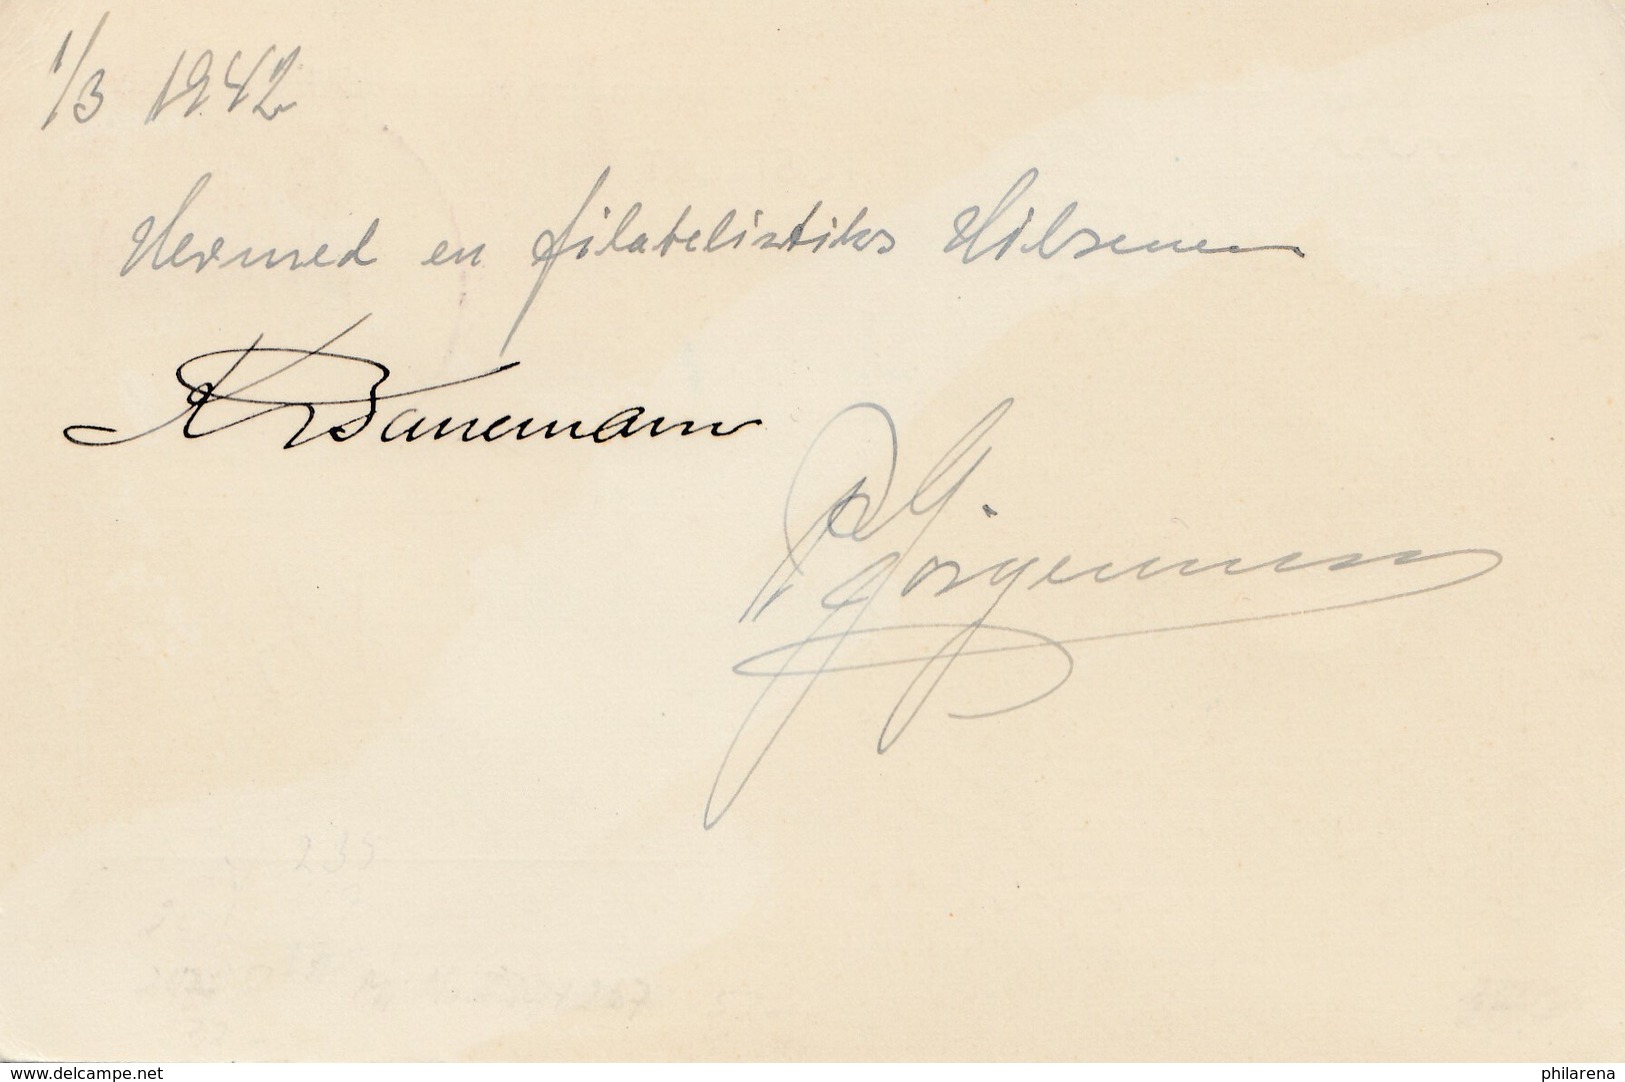 1/3 1942
Hermed en filatelistiks Hilsenen
K Danemann
Jørgensen
235
www.delcampe.net
philarena